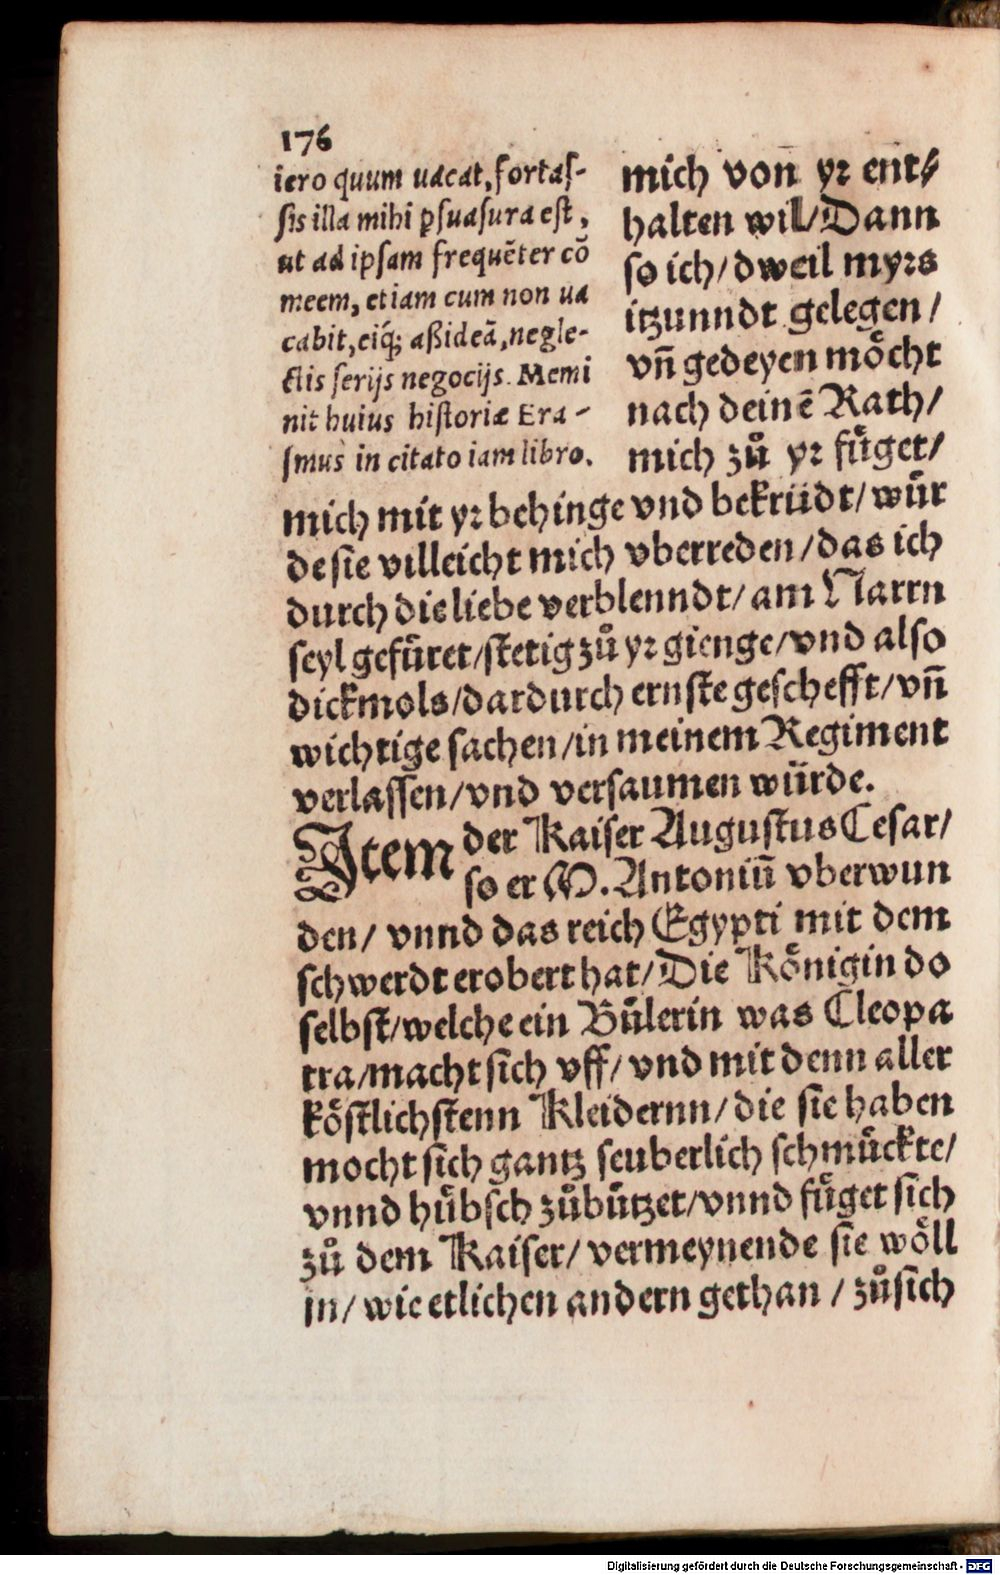 176
iero quum uacat, fortas-
sis illa mihi ꝑsuasura est,
ut ad ipsam frequẽter cõ
meem, etiam cum non ua
cabit, eiq́; aßideã, negle-
ctis serijs negocijs. Memi
nit huius historiæ Era-
smus in citato iam libro.
mich von yr ent/
halten wil/Dann
so ich/dweil myrs
itzunndt gelegen/
vñ gedeyen moͤcht
nach deinẽ Rath/
mich zů yr fuͤget/
mich mit yr behinge vnd bekrüdt/wuͤr
de sie villeicht mich vberreden/das ich
durch die liebe verblenndt/am Narrn
seyl gefuͤret/stetig zů yr gienge/vnd also
dickmols/dardurch ernste geschefft/vñ
wichtige sachen/in meinem Regiment
verlassen/vnd versaumen wuͤrde.
Item der Kaiser Augustus Cesar/
so er M. Antoniũ vberwun
den/ vnnd das reich Egypti mit dem
schwerdt erobert hat/Die Koͤnigin do
selbst/welche ein Buͤlerin was Cleopa
tra/macht sich vff/vnd mit denn aller
koͤstlichstenn Kleidernn/die sie haben
mocht sich gantz seuberlich schmuͤckte/
vnnd huͤbsch zůbuͤtzet/vnnd fuͤget sich
zů dem Kaiser/ vermeynende sie woͤll
jn/ wie etlichen andern gethan / zůsich
Digitalisierung gefördert durch die Deutsche Forschungsgemeinschaft - DFG